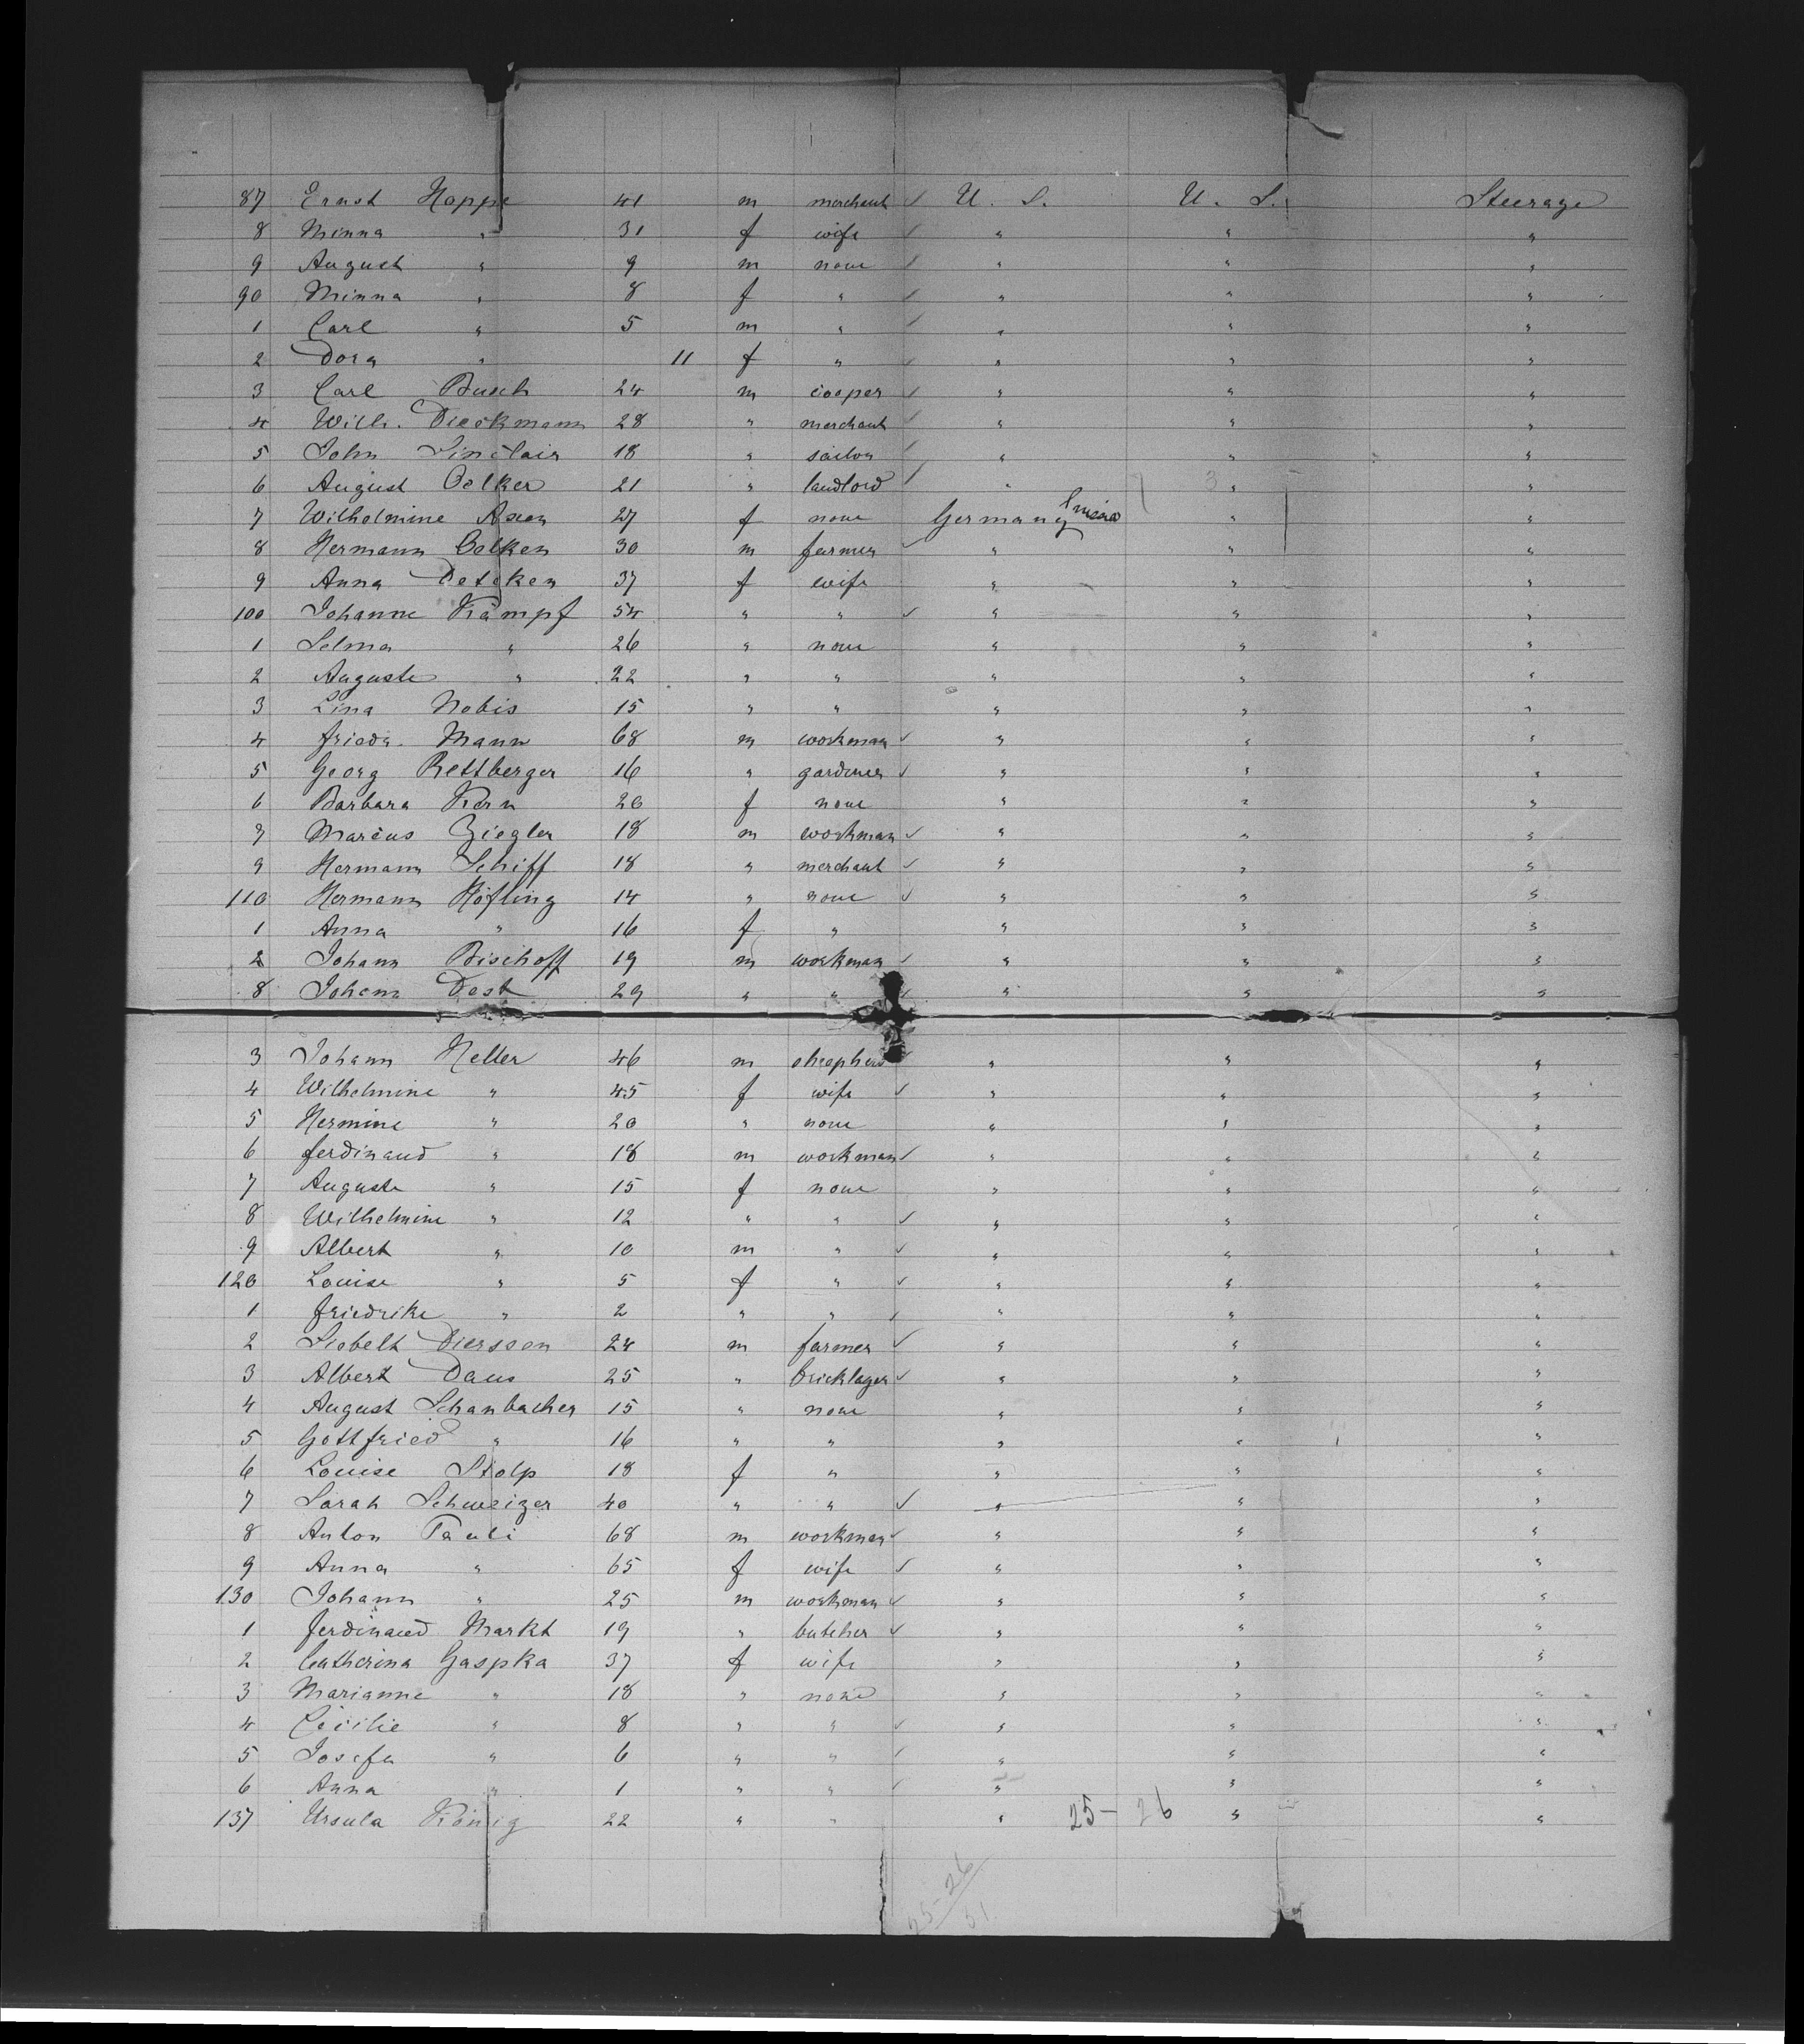 87 Ernst Hoppe 41 m merchant ✓ U. S. U. S. Steerage
8 Minna " 31 f wife ✓ " " "
9 August " 9 m none ✓ " " "
90 Minna " 8 f " ✓ " " "
1 Carl " 5 m " ✓ " " "
2 Dora " 11 f " ✓ " " "
3 Carl Busch 24 m cooper ✓ " " "
4 Wilh. Dieckmann 28 " merchant ✓ " " "
5 John Sinclair 18 " sailor ✓ " " "
6 August Oelker 21 " landlord ✓ " 3 " "
7 Wilhelmine Axen 27 f none Germany " "
8 Hermann Oelken 30 m farmer ✓ " " "
9 Anna Deteken 37 f wife " " "
100 Johanne Kämpf 54 " " ✓ " " "
1 Selma " 26 " none " " "
2 Auguste " 22 " " " " "
3 Lina Nobis 15 " " " " "
4 Friedr. Mann 68 m workman ✓ " " "
5 Georg Rettberger 16 " gardener ✓ " " "
6 Barbara Kern 20 f none " " "
7 Marcus Ziegler 18 m workman ✓ " " "
9 Hermann Schiff 18 " merchant ✓ " " "
110 Hermann Höfling 14 " none ✓ " " "
1 Anna " 16 f " " " "
2 Johann Bischoff 19 m workman ✓ " " "
8 Johann Dost 29 " " ✓ " " "
3 Johann Heller 46 m shepherd ✓ " " "
4 Wilhelmine " 45 f wife ✓ " " "
5 Hermine " 20 " none " " "
6 Ferdinand " 18 m workman ✓ " " "
7 Auguste " 15 f none " " "
8 Wilhelmine " 12 " " ✓ " " "
9 Albert " 10 m " ✓ " " "
120 Louise " 5 f " ✓ " " "
1 Friedrike " 2 " " ✓ " " "
2 Siebelt Dierssen 24 m farmer ✓ " " "
3 Albert Daus 25 " bricklager ✓ " " "
4 August Schanbacher 15 " none " " "
5 Gottfried " 16 " " " " "
6 Louise Stolp 18 f " " " "
7 Sarah Schweizer 40 " " ✓ " " "
8 Anton Pauli 68 m workman ✓ " " "
9 Anna " 65 f wife ✓ " " "
130 Johann " 25 m workman ✓ " " "
1 Ferdinand Markt 19 " butcher ✓ " " "
2 Catherina Gaspka 37 f wife " " "
3 Marianne " 18 " none " " "
4 Cecilie " 8 " " ✓ " " "
5 Josefa " 6 " " ✓ " " "
6 Anna " 1 " " ✓ " " "
137 Ursula König 22 " " " 25 - 26 " "
25-26
51